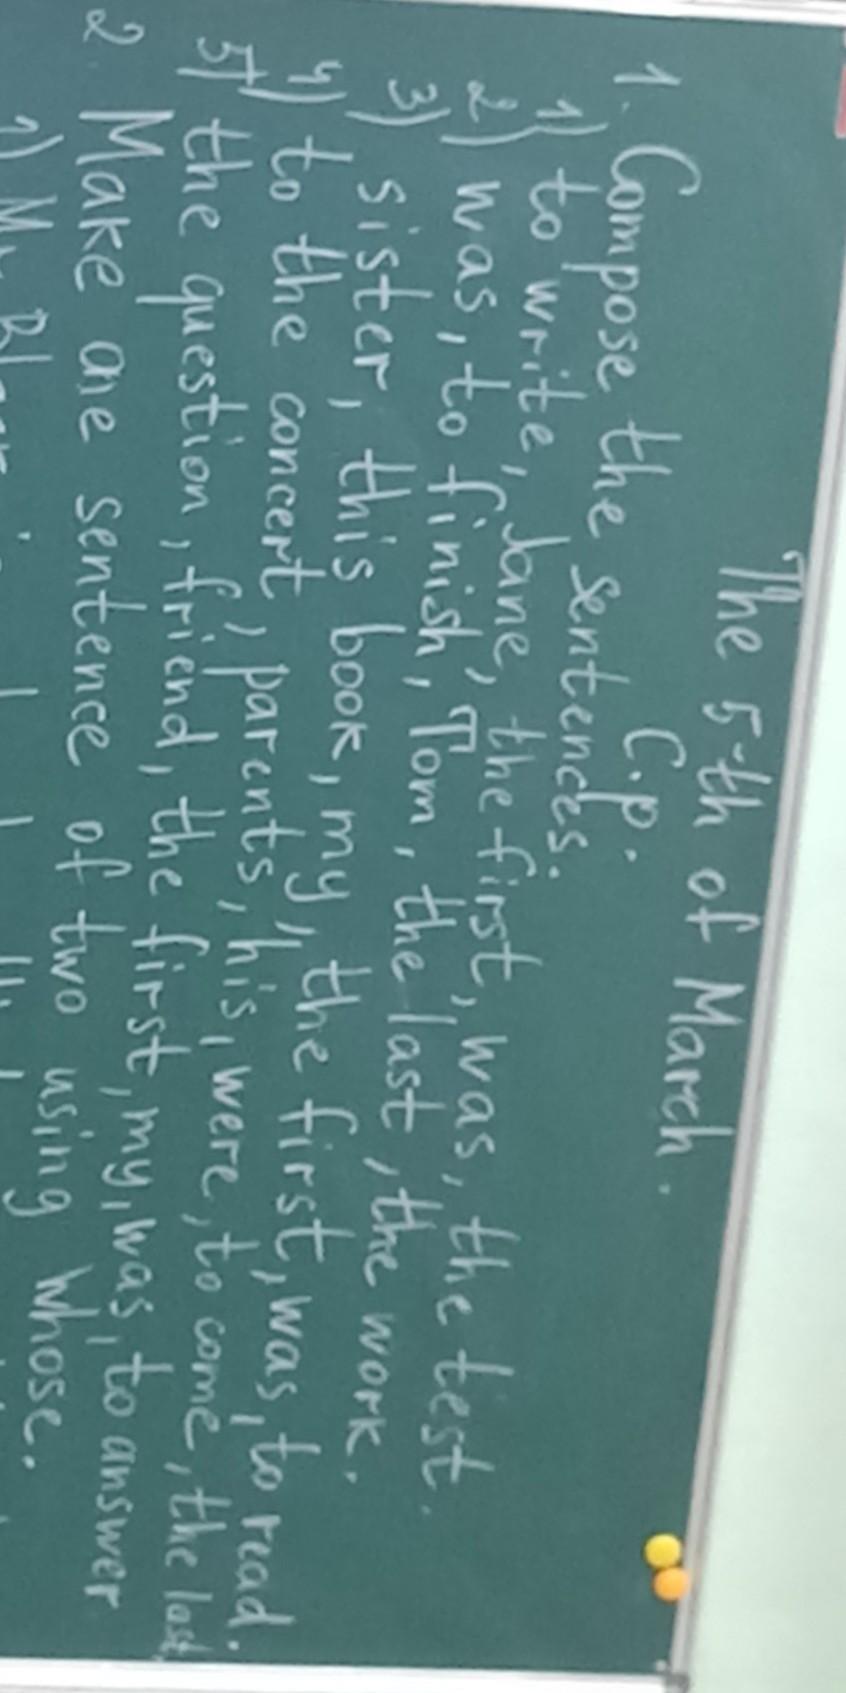 The 5-th of March.
C.p.
1. Compose the sentences.
1) to write, Jane, the first, was, the test.
2) was, to finish, Tom, the last, the work.
3) sister, this book, my, the first, was, to read.
4) to the concert, parents, his, were, to come, the last.
5) the question, friend, the first, my, was, to answer
2 Make one sentence of two using whose.
1) Mr